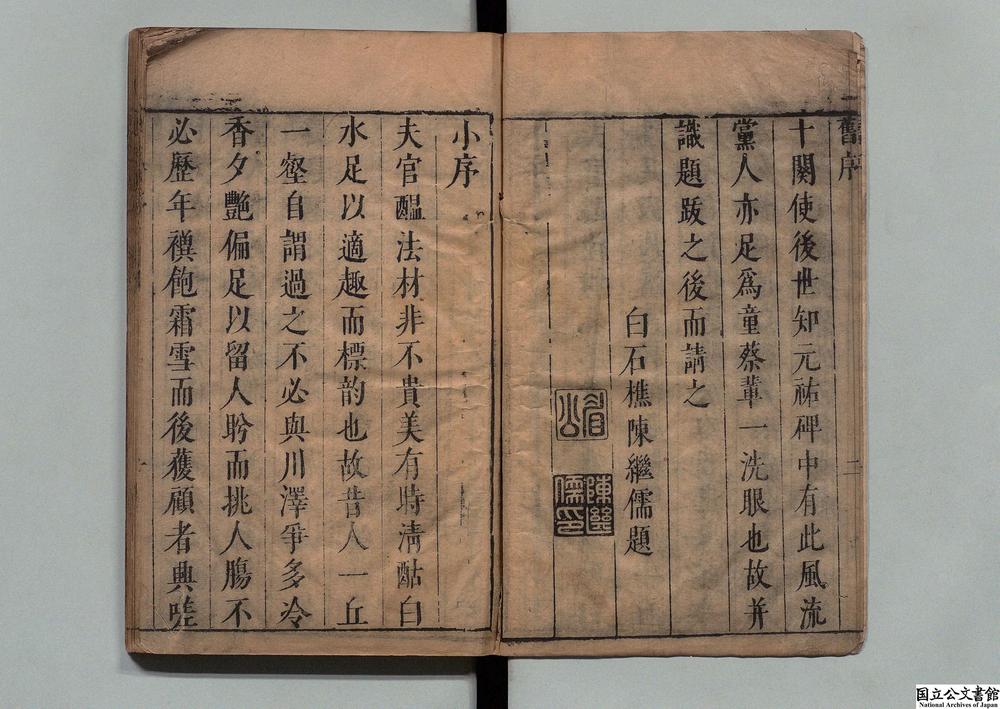 舊序
十闋使後世知元祐碑中有此風流
黨人亦足爲童蔡輩一洗眼也故并
識題跋之後而請之
白石樵陳繼儒題
眉公
陳繼儒印
二
小序
夫官醞法材非不貴美有時淸酤白
水足以適趣而標韵也故昔人一丘
一壑自謂過之不必與川澤爭多冷
香夕艷偏足以留人肹而挑人膓不
必歷年禩飽霜雪而後獲顧者典哇
国立公文書館
National Archives of Japan